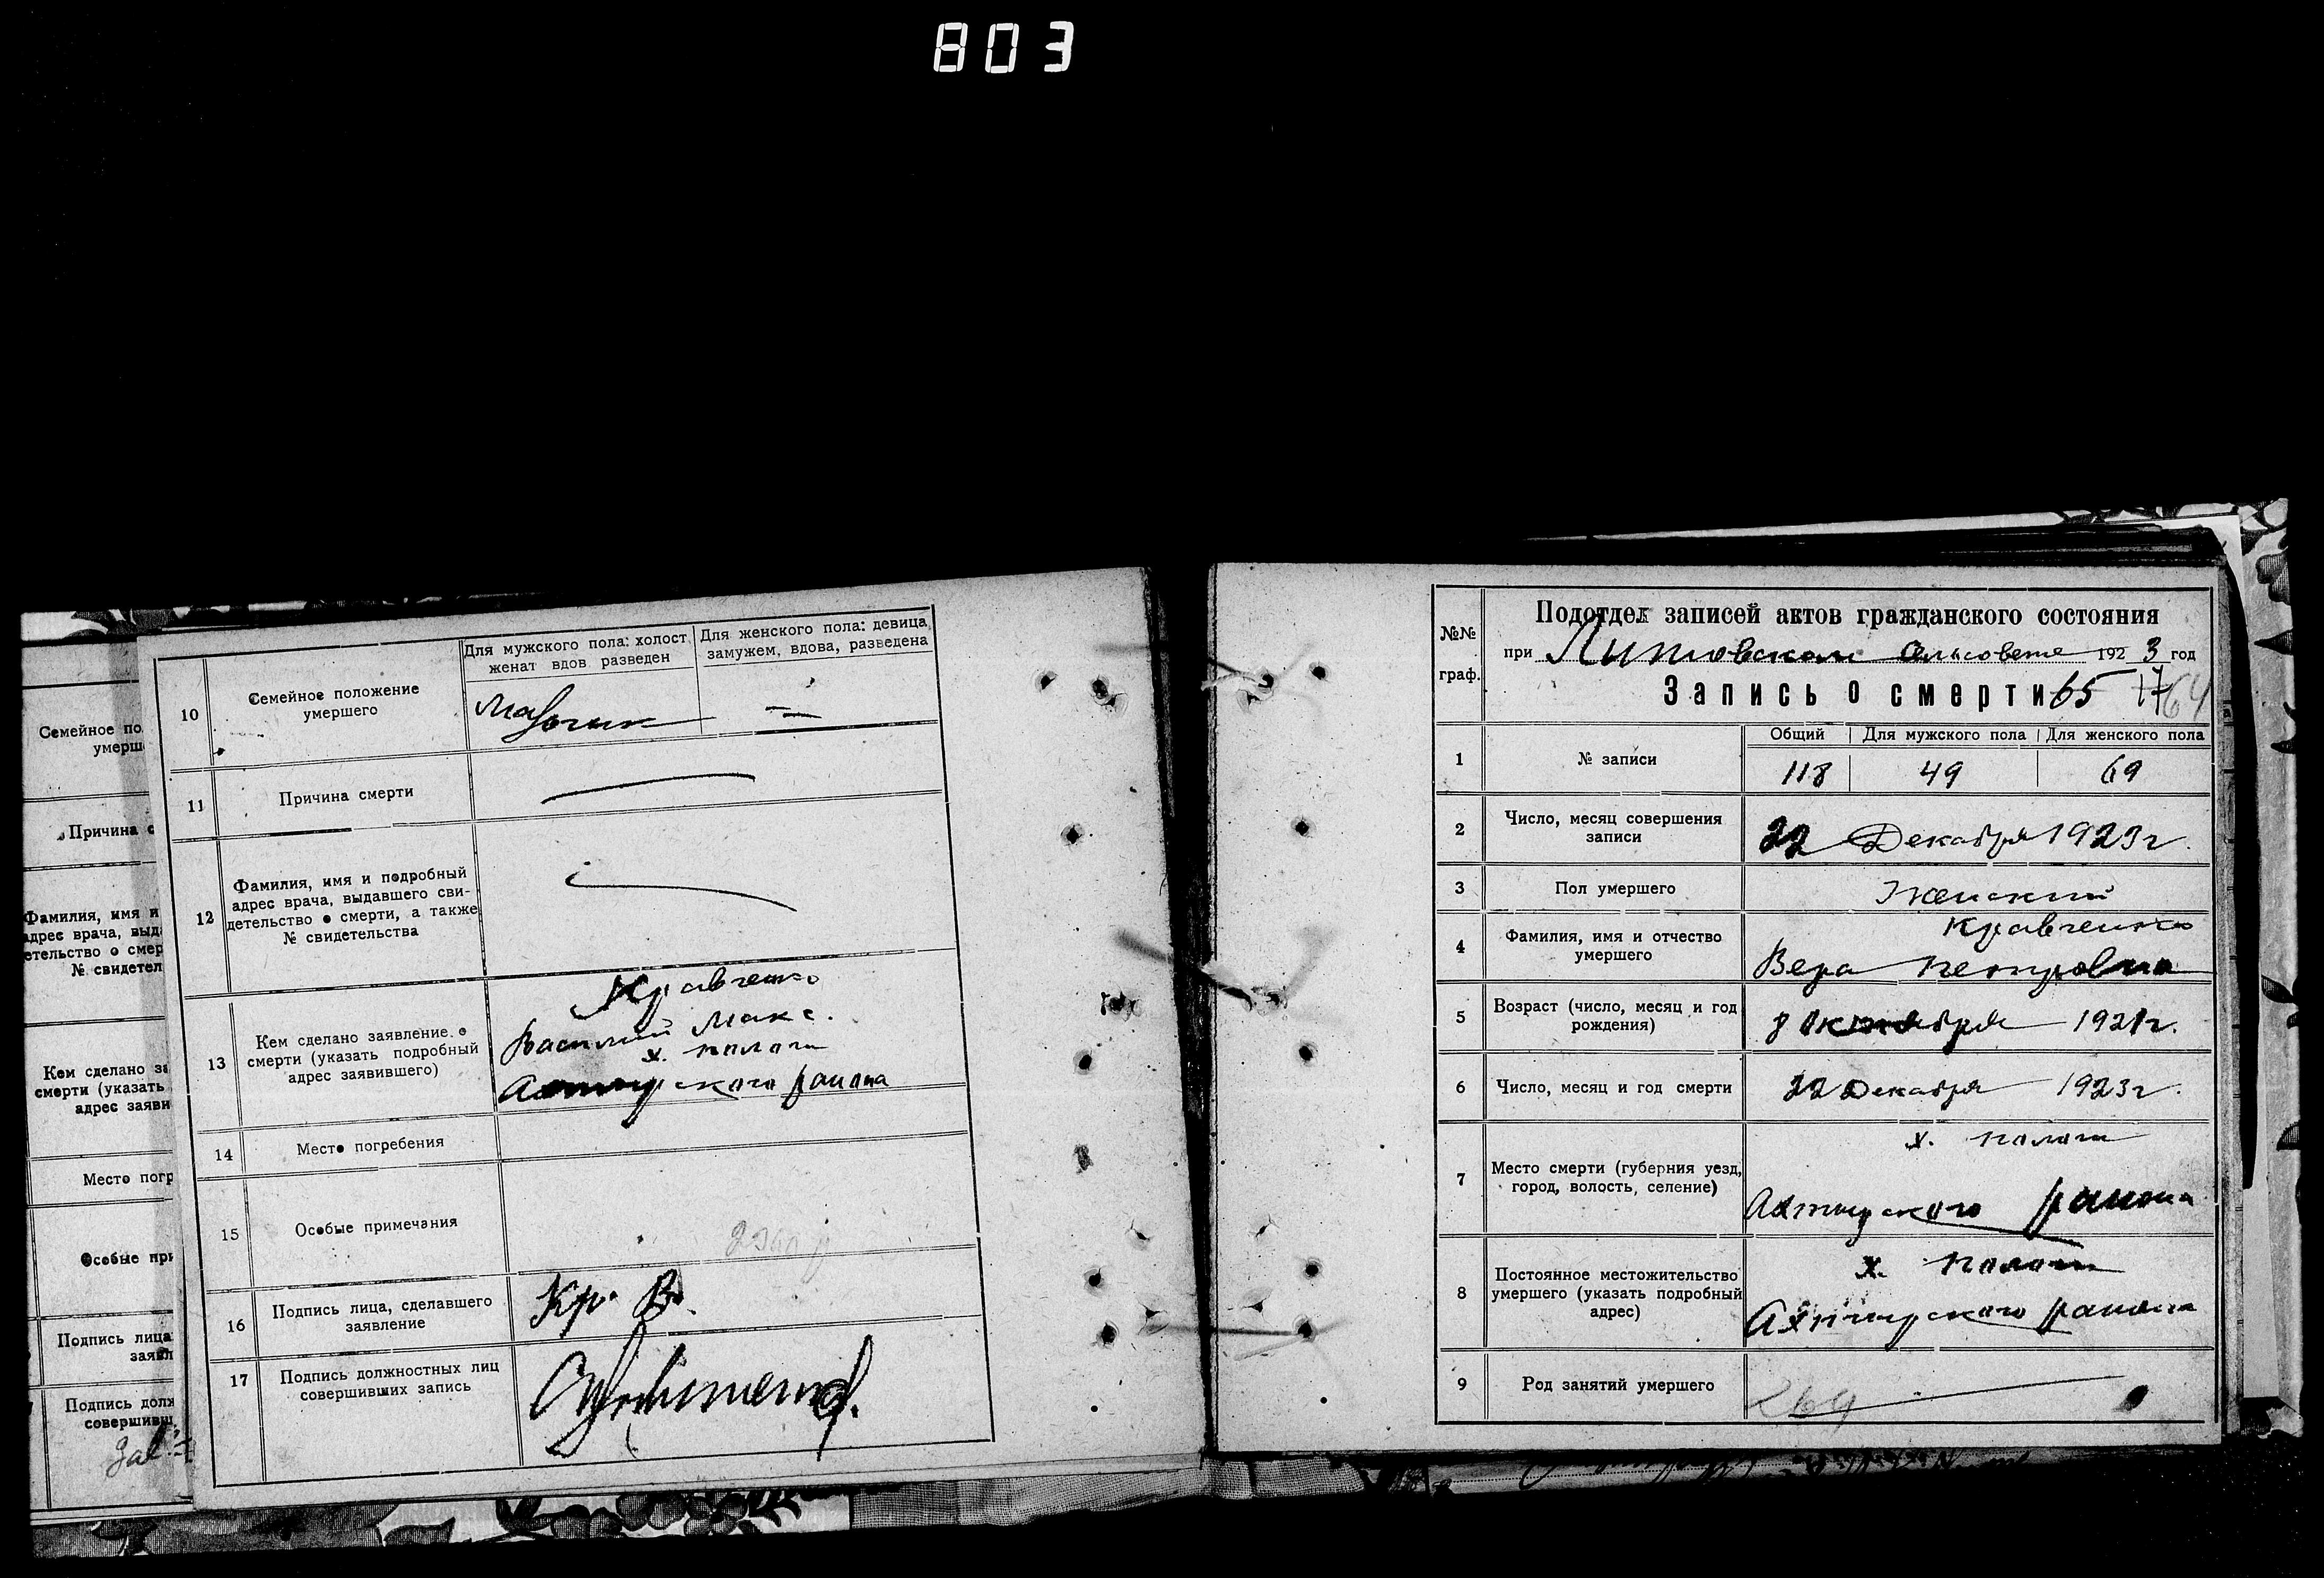 803
Семейное по
умерш
Причина с
Фамилия, имя и
адрес врача, выд
етельство о смер
№ свидетел
Кем сделано за
смерти (указать
адрес заяви
Место погр
Особые при
Подпись лица
заявл
Подпись долж
совершивш
10
Семейное положение
умершего
Для мужского пола: холост
женат вдов разведен
Для женского пола: девица
замужем, вдова, разведена
11
Причина смерти
12
Фамилия, имя и подробный
адрес врача, выдавшего сви-
детельство о смерти, а также
№ свидетельства
13
Кем сделано заявление о
смерти (указать подробный
адрес заявившего)
Кравченко
Василий Макс.
х.
Ахтирского района
14
Место погребения
15
Особые примечания
16
Подпись лица, сделавшего
заявление
Кр. В.
17
Подпись должностных лиц
совершивших запись
№№
граф.
Подотдел записей актов гражданского состояния
при сельсовете 1923 год
Запись о смерти 65 17 64
1
№ записи
Общий
Для мужского пола
Для женского пола
118
49
69
2
Число, месяц совершения
записи
22 Декабря 1923 г.
3
Пол умершего
Женский
4
Фамилия, имя и отчество
умершего
Кравченко
Вера Петровна
5
Возраст (число, месяц и год
рождения)
8 Октября 1921 г.
6
Число, месяц и год смерти
22 Декабря 1923 г.
7
Место смерти (губерния уезд,
город, волость, селение)
х.
Ахтирского района
8
Постоянное местожительство
умершего (указать подробный
адрес)
х.
Ахтирского района
9
Род занятий умершего
269